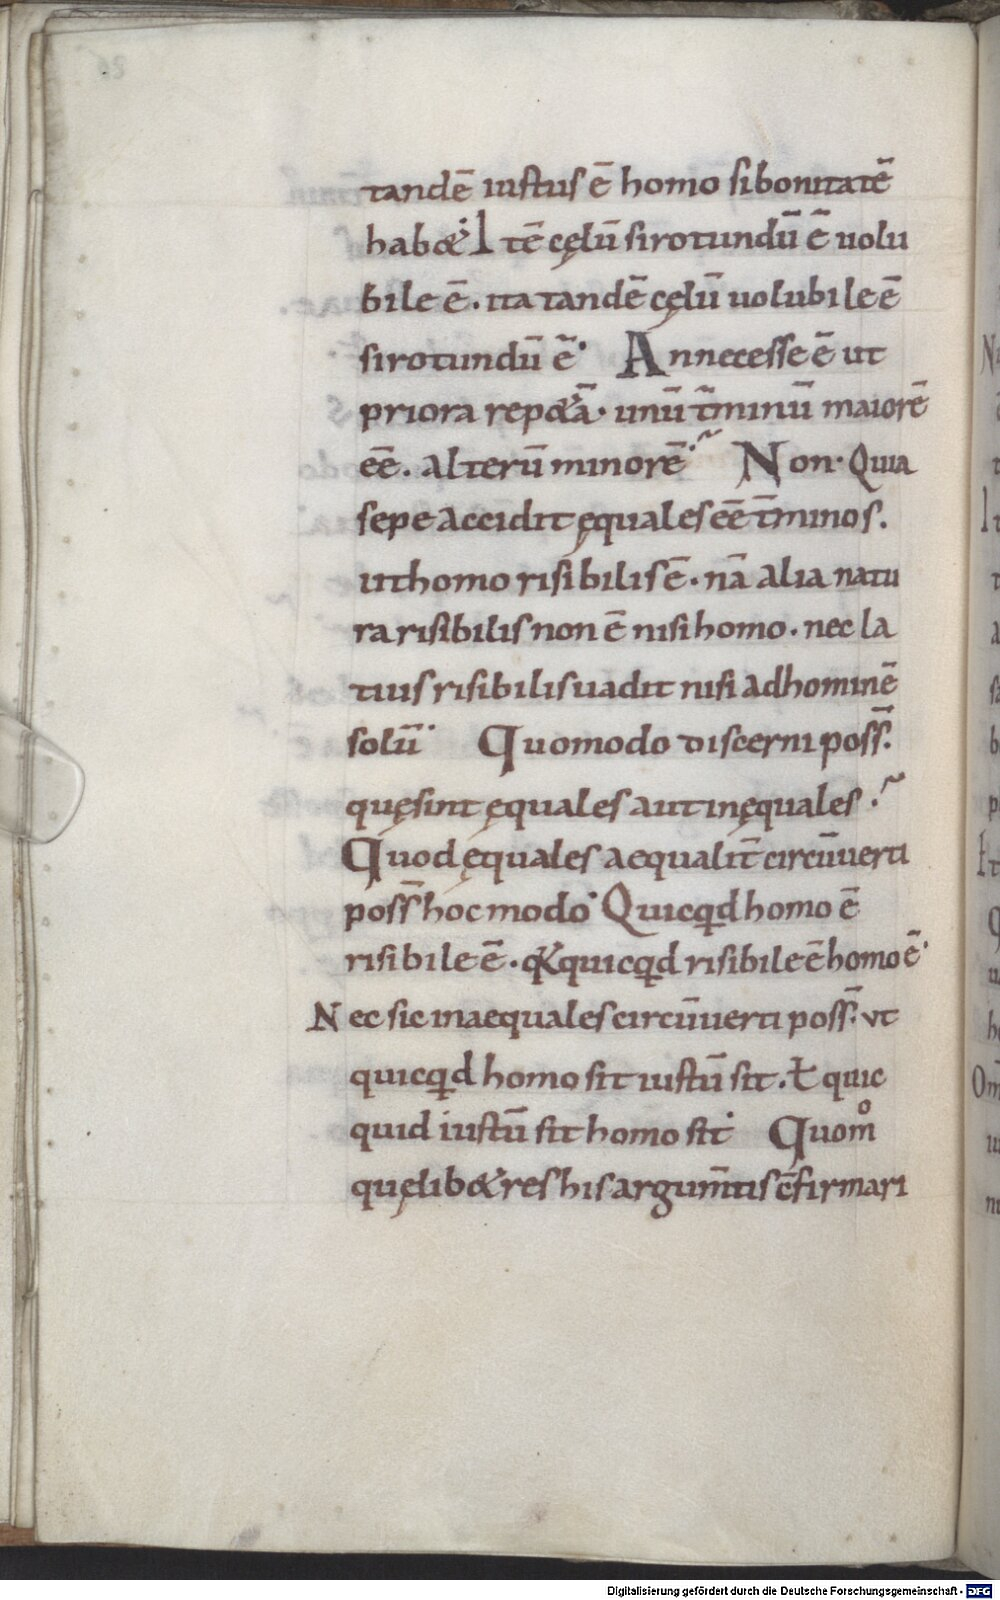 tandē iustus ē homo si bonitatē
hab&. Itē cęlū si rotundū ē uolu
bile ē. ita tandē cęlū uolubile ē
si rotundū ē. An necesse ē ut
priora rep&ā. unū t̄minū maiorē
eē. alterū minorē? Non. Quia
sepe accidit ęquales eē t̄minos.
ut homo risibilis ē. nā alia natu
ra risibilis non ē nisi homo. nec la
tius risibilis uadit nisi ad hominē
solū. Quomodo discerni poss̄.
quę sint ęquales aut inęquales?
Quod ęquales aequalit̄ circūuerti
poss̄ hoc modo. Quicqd homo ē
risibile ē. & quicqd risibile ē homo ē.
Nec sic inaequales circūuerti poss̄. ut
quicqd homo sit iustū sit. ł quic
quid iustū sit homo sit. Quom̊
quęlib& res his argum̄tis c̄firmari
Digitalisierung gefördert durch die Deutsche Forschungsgemeinschaft - DFG